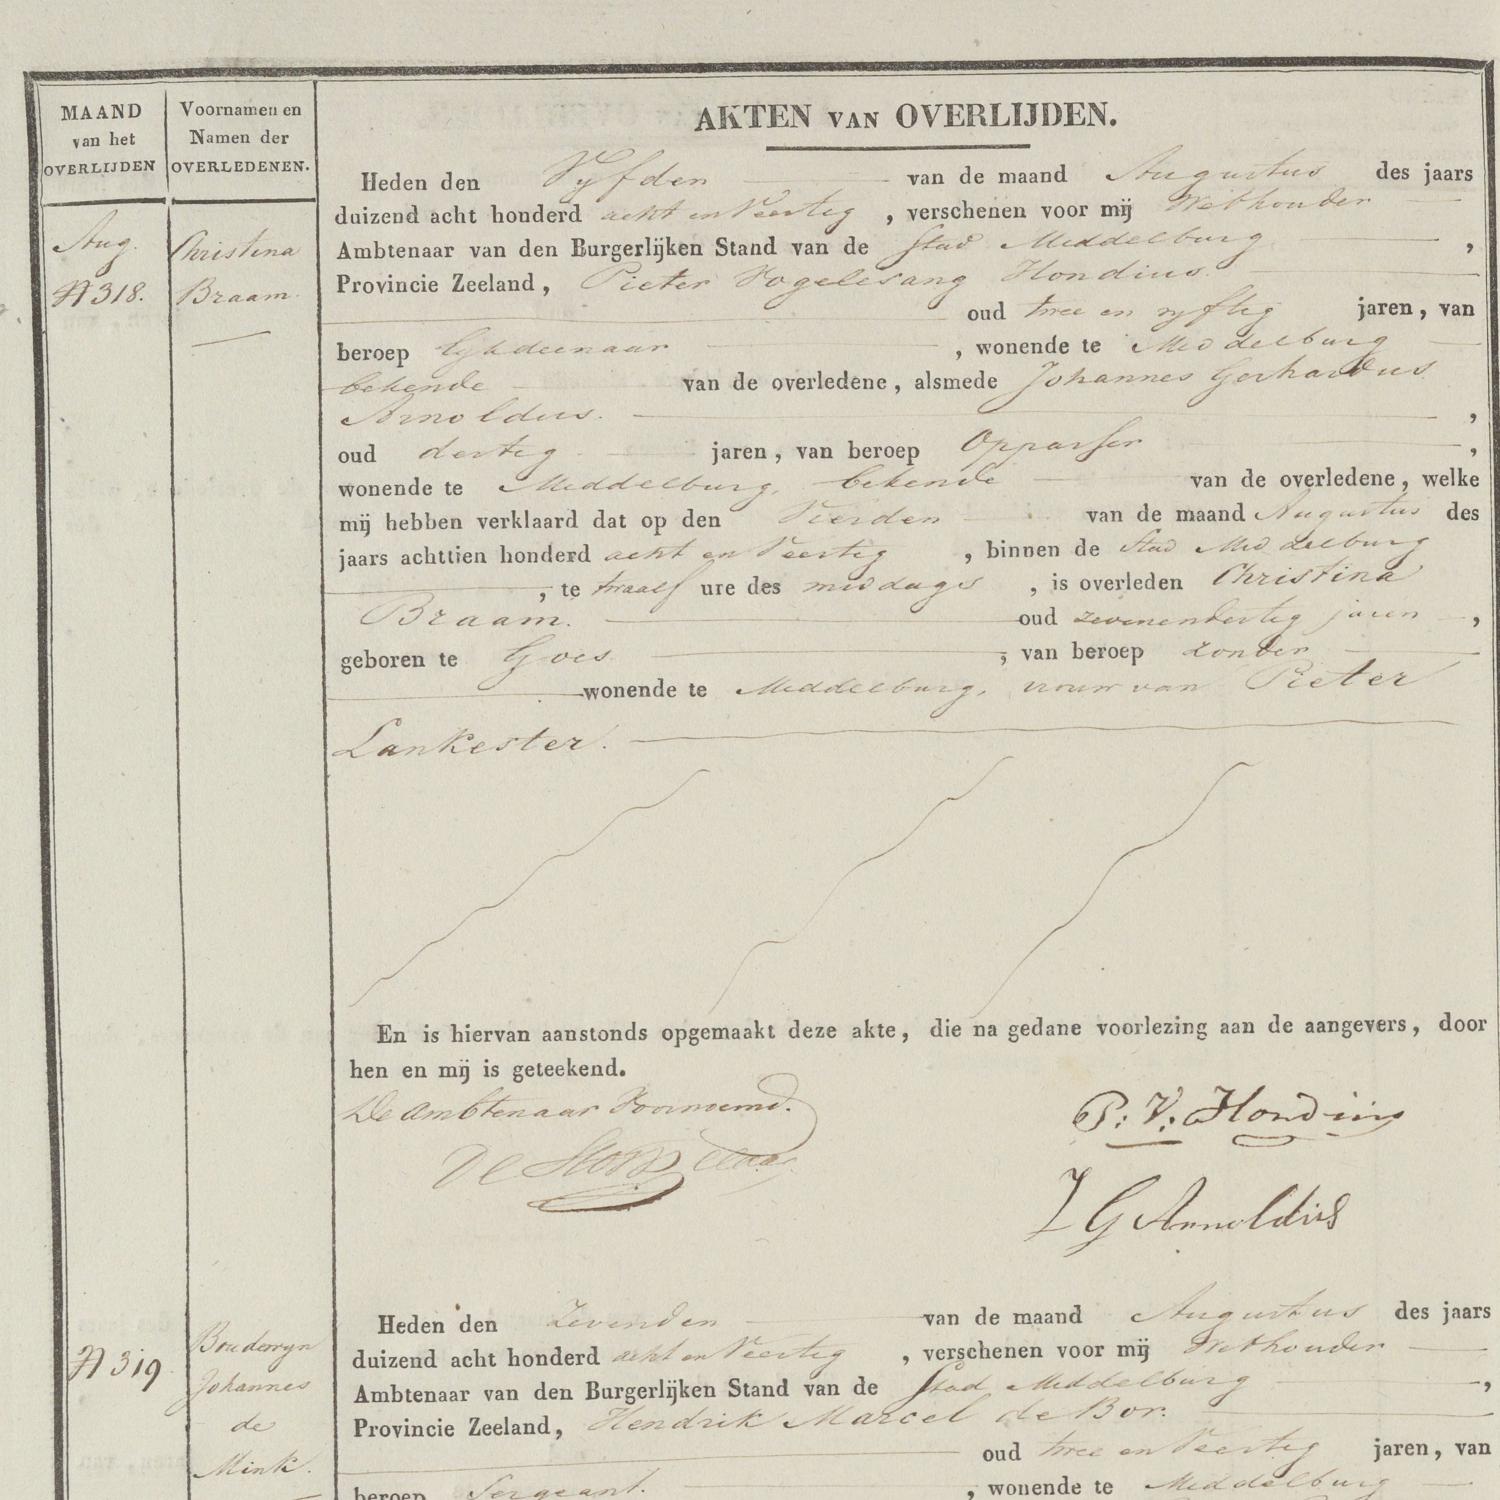 MAAND
van het
OVERLIJDEN
Voornamen en
Namen der
OVERLEDENEN.
AKTEN VAN OVERLIJDEN.
Aug.
N 318.
Christina
Braam.
Heden den Vyfden van de maand Augustus des jaars
duizend acht honderd acht en Veertig, verschenen voor mij Wethouder
Ambtenaar van den Burgerlijken Stand van de Stad Middelburg,
Provincie Zeeland, Pieter Vogelesang Hondius.
oud twee en vyftig jaren, van
beroep Lykdienaar, wonende te Middelburg
bekende van de overledene, alsmede Johannes Gerhardus
Arnoldus.,
oud dertig jaren, van beroep Oppasser,
wonende te Middelburg, bekende van de overledene, welke
mij hebben verklaard dat op den Vierden van de maand Augustus des
jaars achttien honderd acht en Veertig, binnen de Stad Middelburg
, te twaalf ure des middags, is overleden Christina
Braam. oud zevenendertig jaren,
geboren te Goes, van beroep zonder
wonende te Middelburg, vrouw van Pieter
Lankester.
En is hiervan aanstonds opgemaakt deze akte, die na gedane voorlezing aan de aangevers, door
hen en mij is geteekend.
De Ambtenaar Voornoemd.
P: V: Hondius
J G Arnoldus
N 319
Boudewyn
Johannes
de
Mink.
Heden den Zevenden van de maand Augustus des jaars
duizend acht honderd acht en Veertig, verschenen voor mij Wethouder
Ambtenaar van den Burgerlijken Stand van de Stad Middelburg,
Provincie Zeeland, Hendrik Marcel de Bor.
oud twee en Veertig jaren, van
beroep Sergeant., wonende te Middelburg